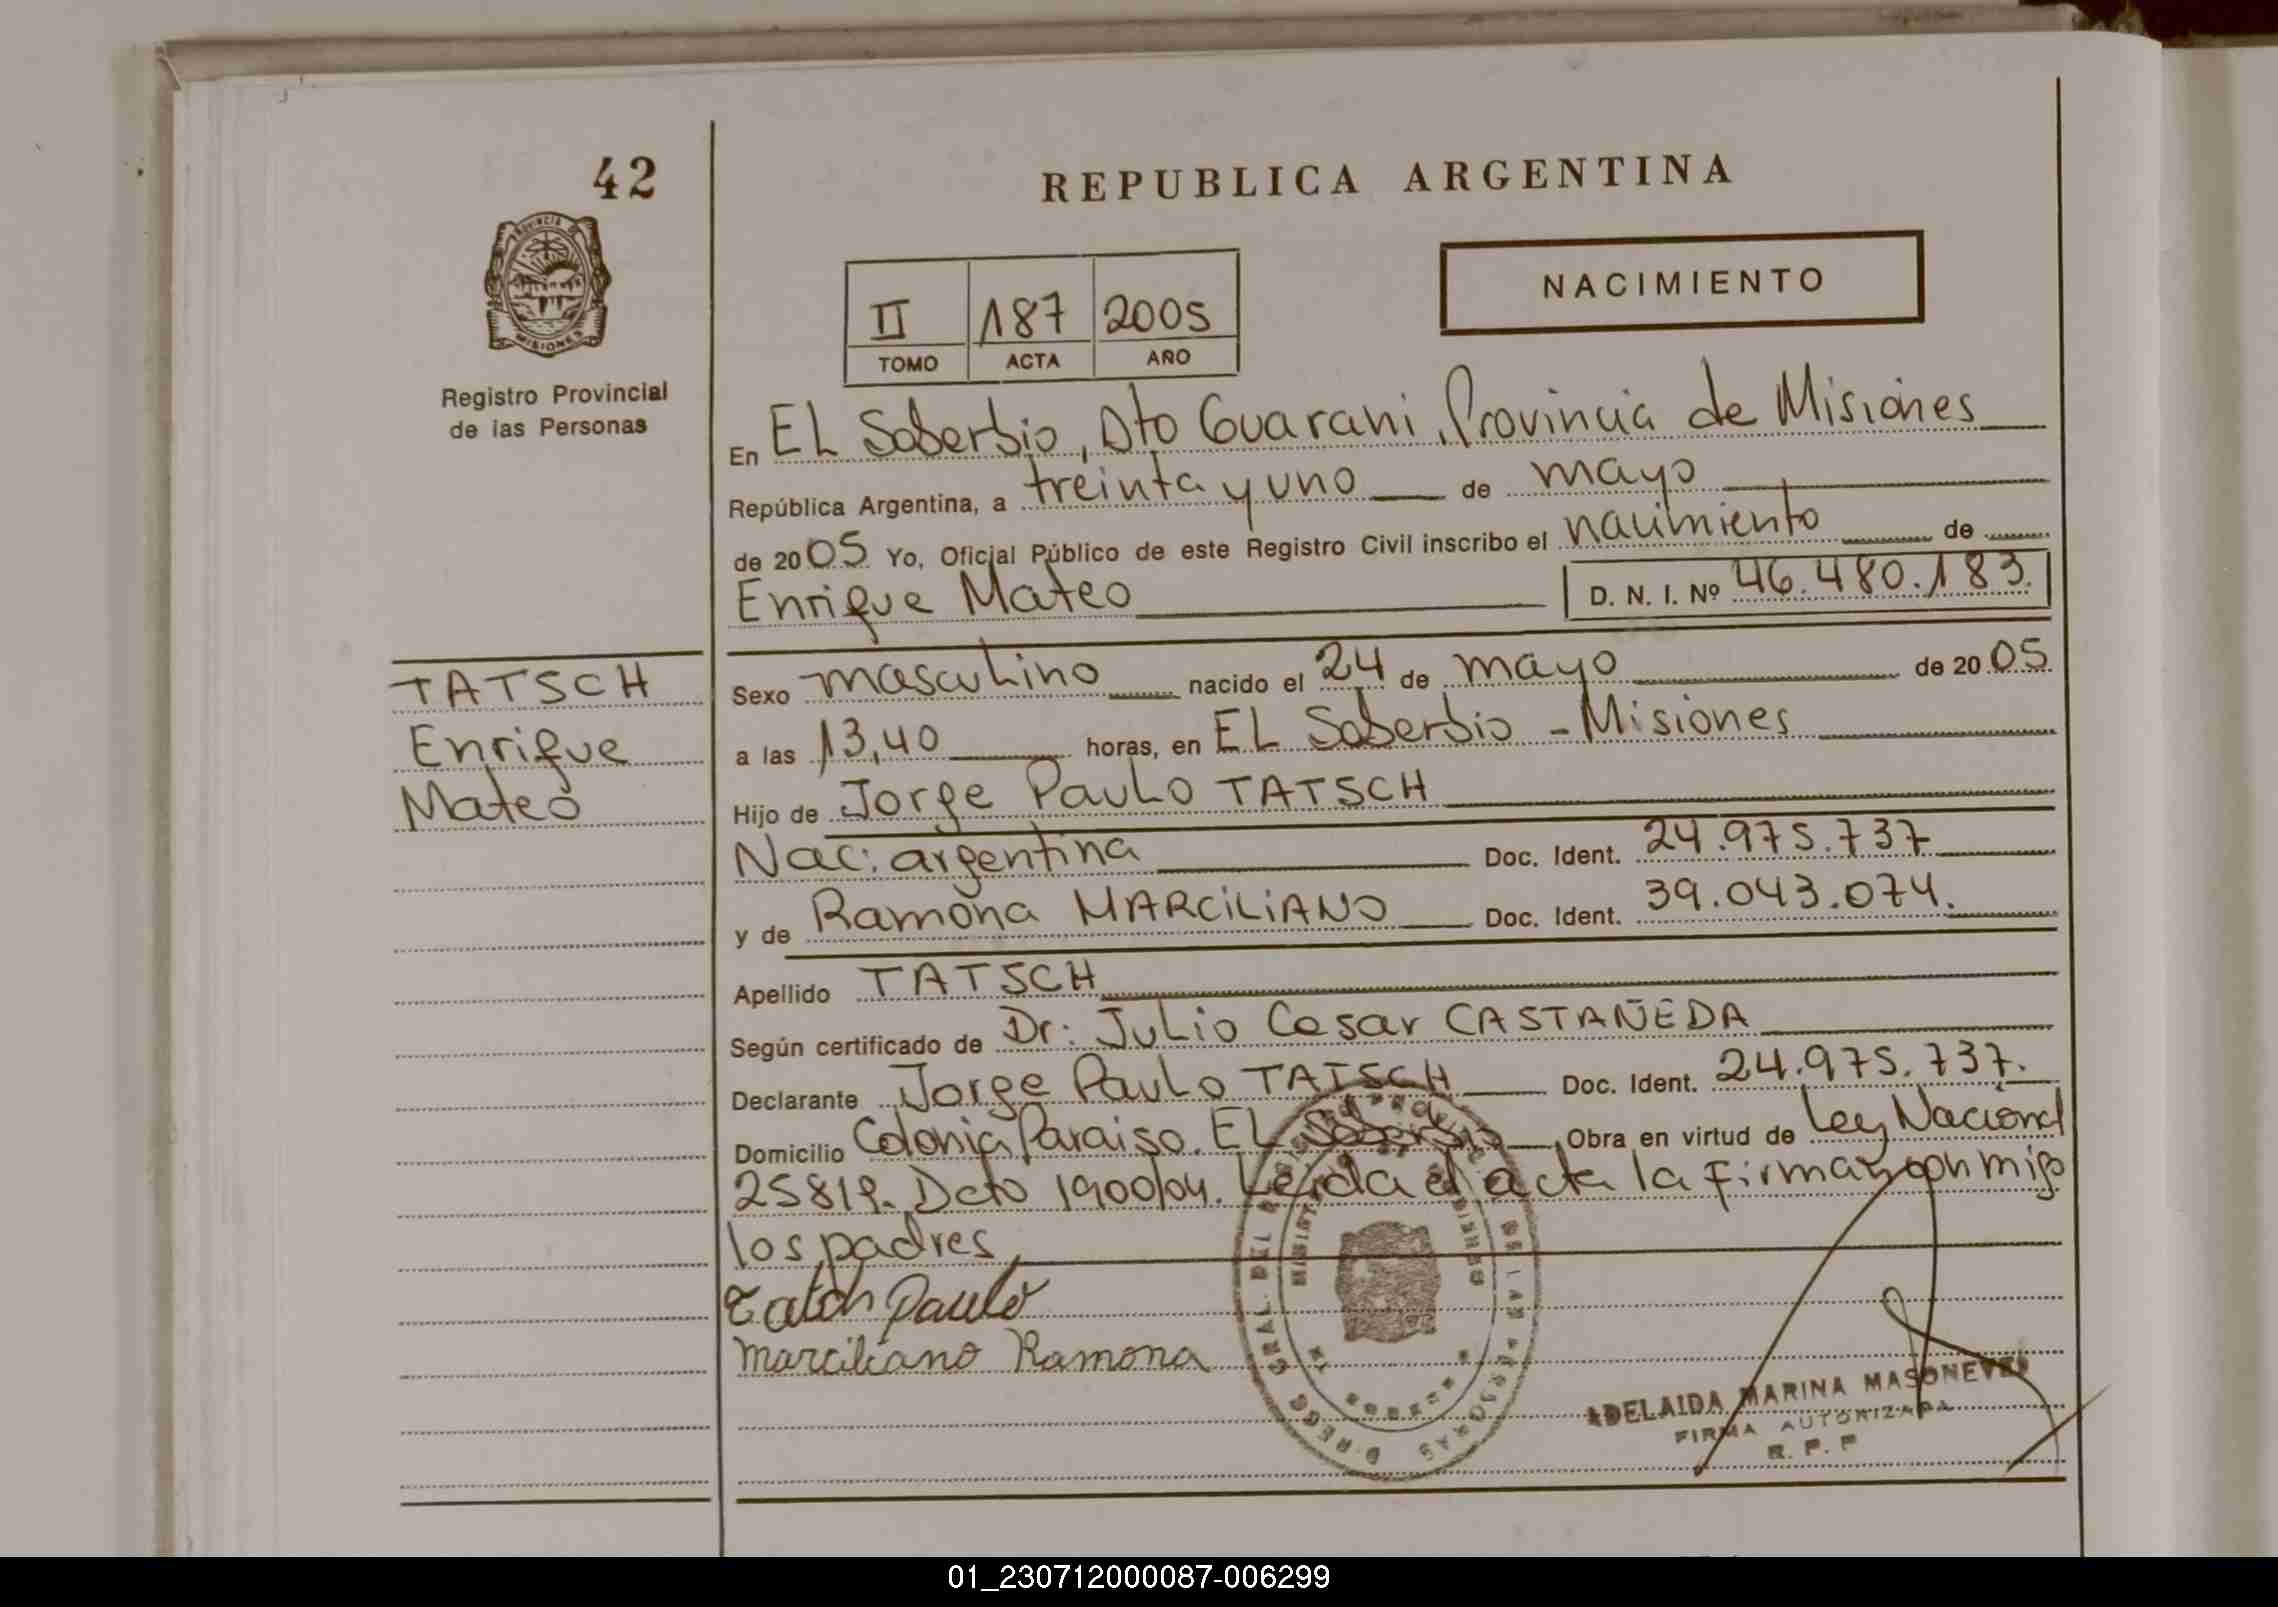 42
REPUBLICA ARGENTINA
PROVINCIA DE
MISIONES
NACIMIENTO
II 187 2005
TOMO ACTA AÑO
Registro Provincial
de las Personas
En EL Soberbio, Dto Guarani, Provincia de Misiones
República Argentina, a treinta y uno de mayo
de 2005 Yo, Oficial Público de este Registro Civil inscribo el nacimiento de
Enrique Mateo D. N. I. Nº 46.480.183.
TATSCH
Enrique
Mateo
Sexo masculino nacido el 24 de mayo de 2005
a las 13,40 horas, en EL Soberbio - Misiones
Hijo de Jorge Paulo TATSCH
Nac: argentina Doc. Ident. 24.975.737
y de Ramona MARCILIANO Doc. Ident. 39.043.074.
Apellido TATSCH
Según certificado de Dr: Julio Cesar CASTAÑEDA
Declarante Jorge Paulo TATSCH Doc. Ident. 24.975.737.
Domicilio Colonia Paraiso. EL Soberbio Obra en virtud de Ley Nacional
25819. Dcto 1900/04. Leida el acta la firman conmigo
los padres
Tatch Paulo
Marciliano Ramona
ADELAIDA MARINA MASONEVES
FIRMA AUTORIZADA
R. P. P
01_230712000087-006299